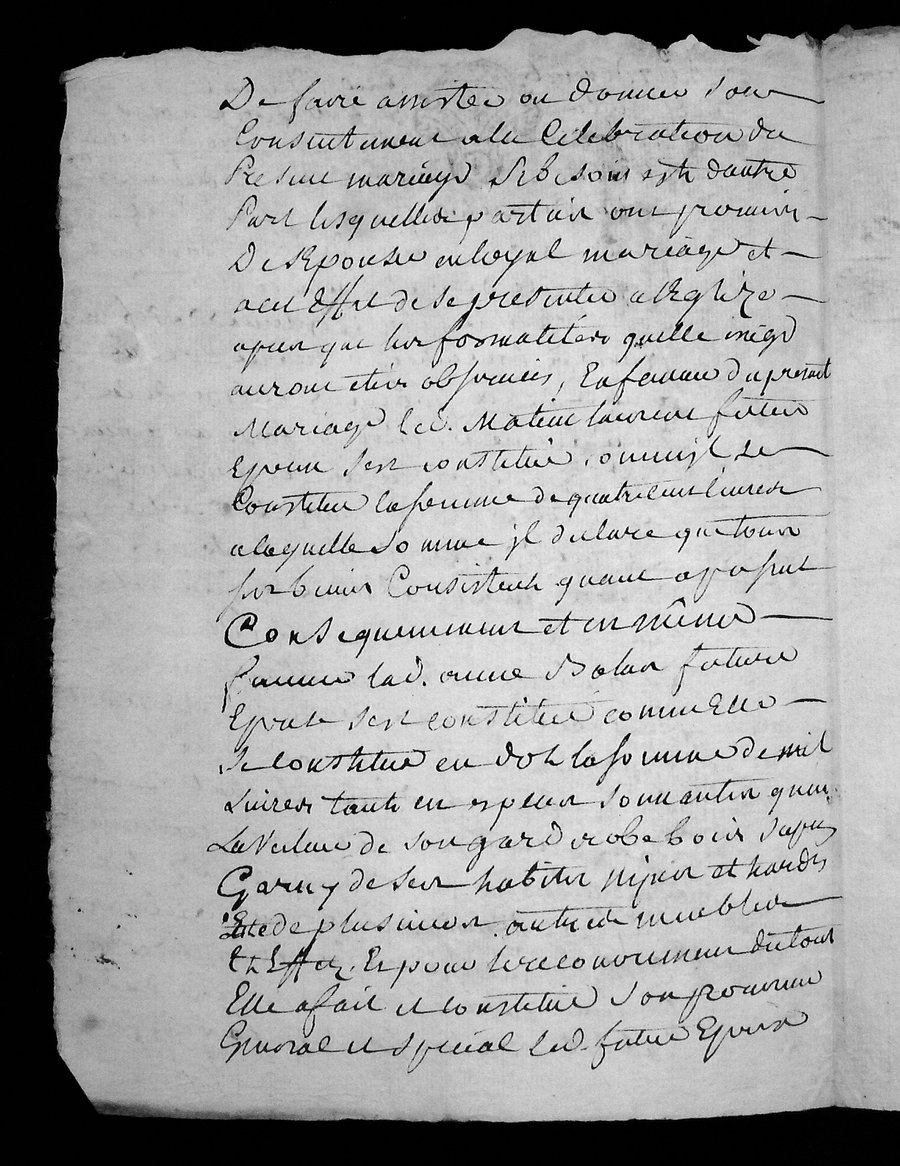 De faire assister ou donner Son
Consentement a la Celebration du
Present mariage Sibesoin est dautre
Part lesquelles parties ont promis
De sEpouser en loyal mariage et
acet Effet de se presenter a lEglize
apres que les formalités quelle exige
auront etées observées, En faveur du present
Mariage led. Matieu laurent futur
Epoux sest constitué comme jl se
Constitue la somme de quatre cent livres
a laquelle somme jl declare que tous
ses biens Consistent quant apresent
Consequemment et en même
faveur lad. anne future
Epouse sest constituée comme Elle
se constitue en dot la somme de mil
Livres tant en especes sonnantes quen
La Valeur de son garderobe bois
Garny de ses habits et hardes
de plusieurs autres meubles
Et Effets. Et pour le recouvrement du tout
Elle a fait et constitué son procureur
General et special led. futur Epoux